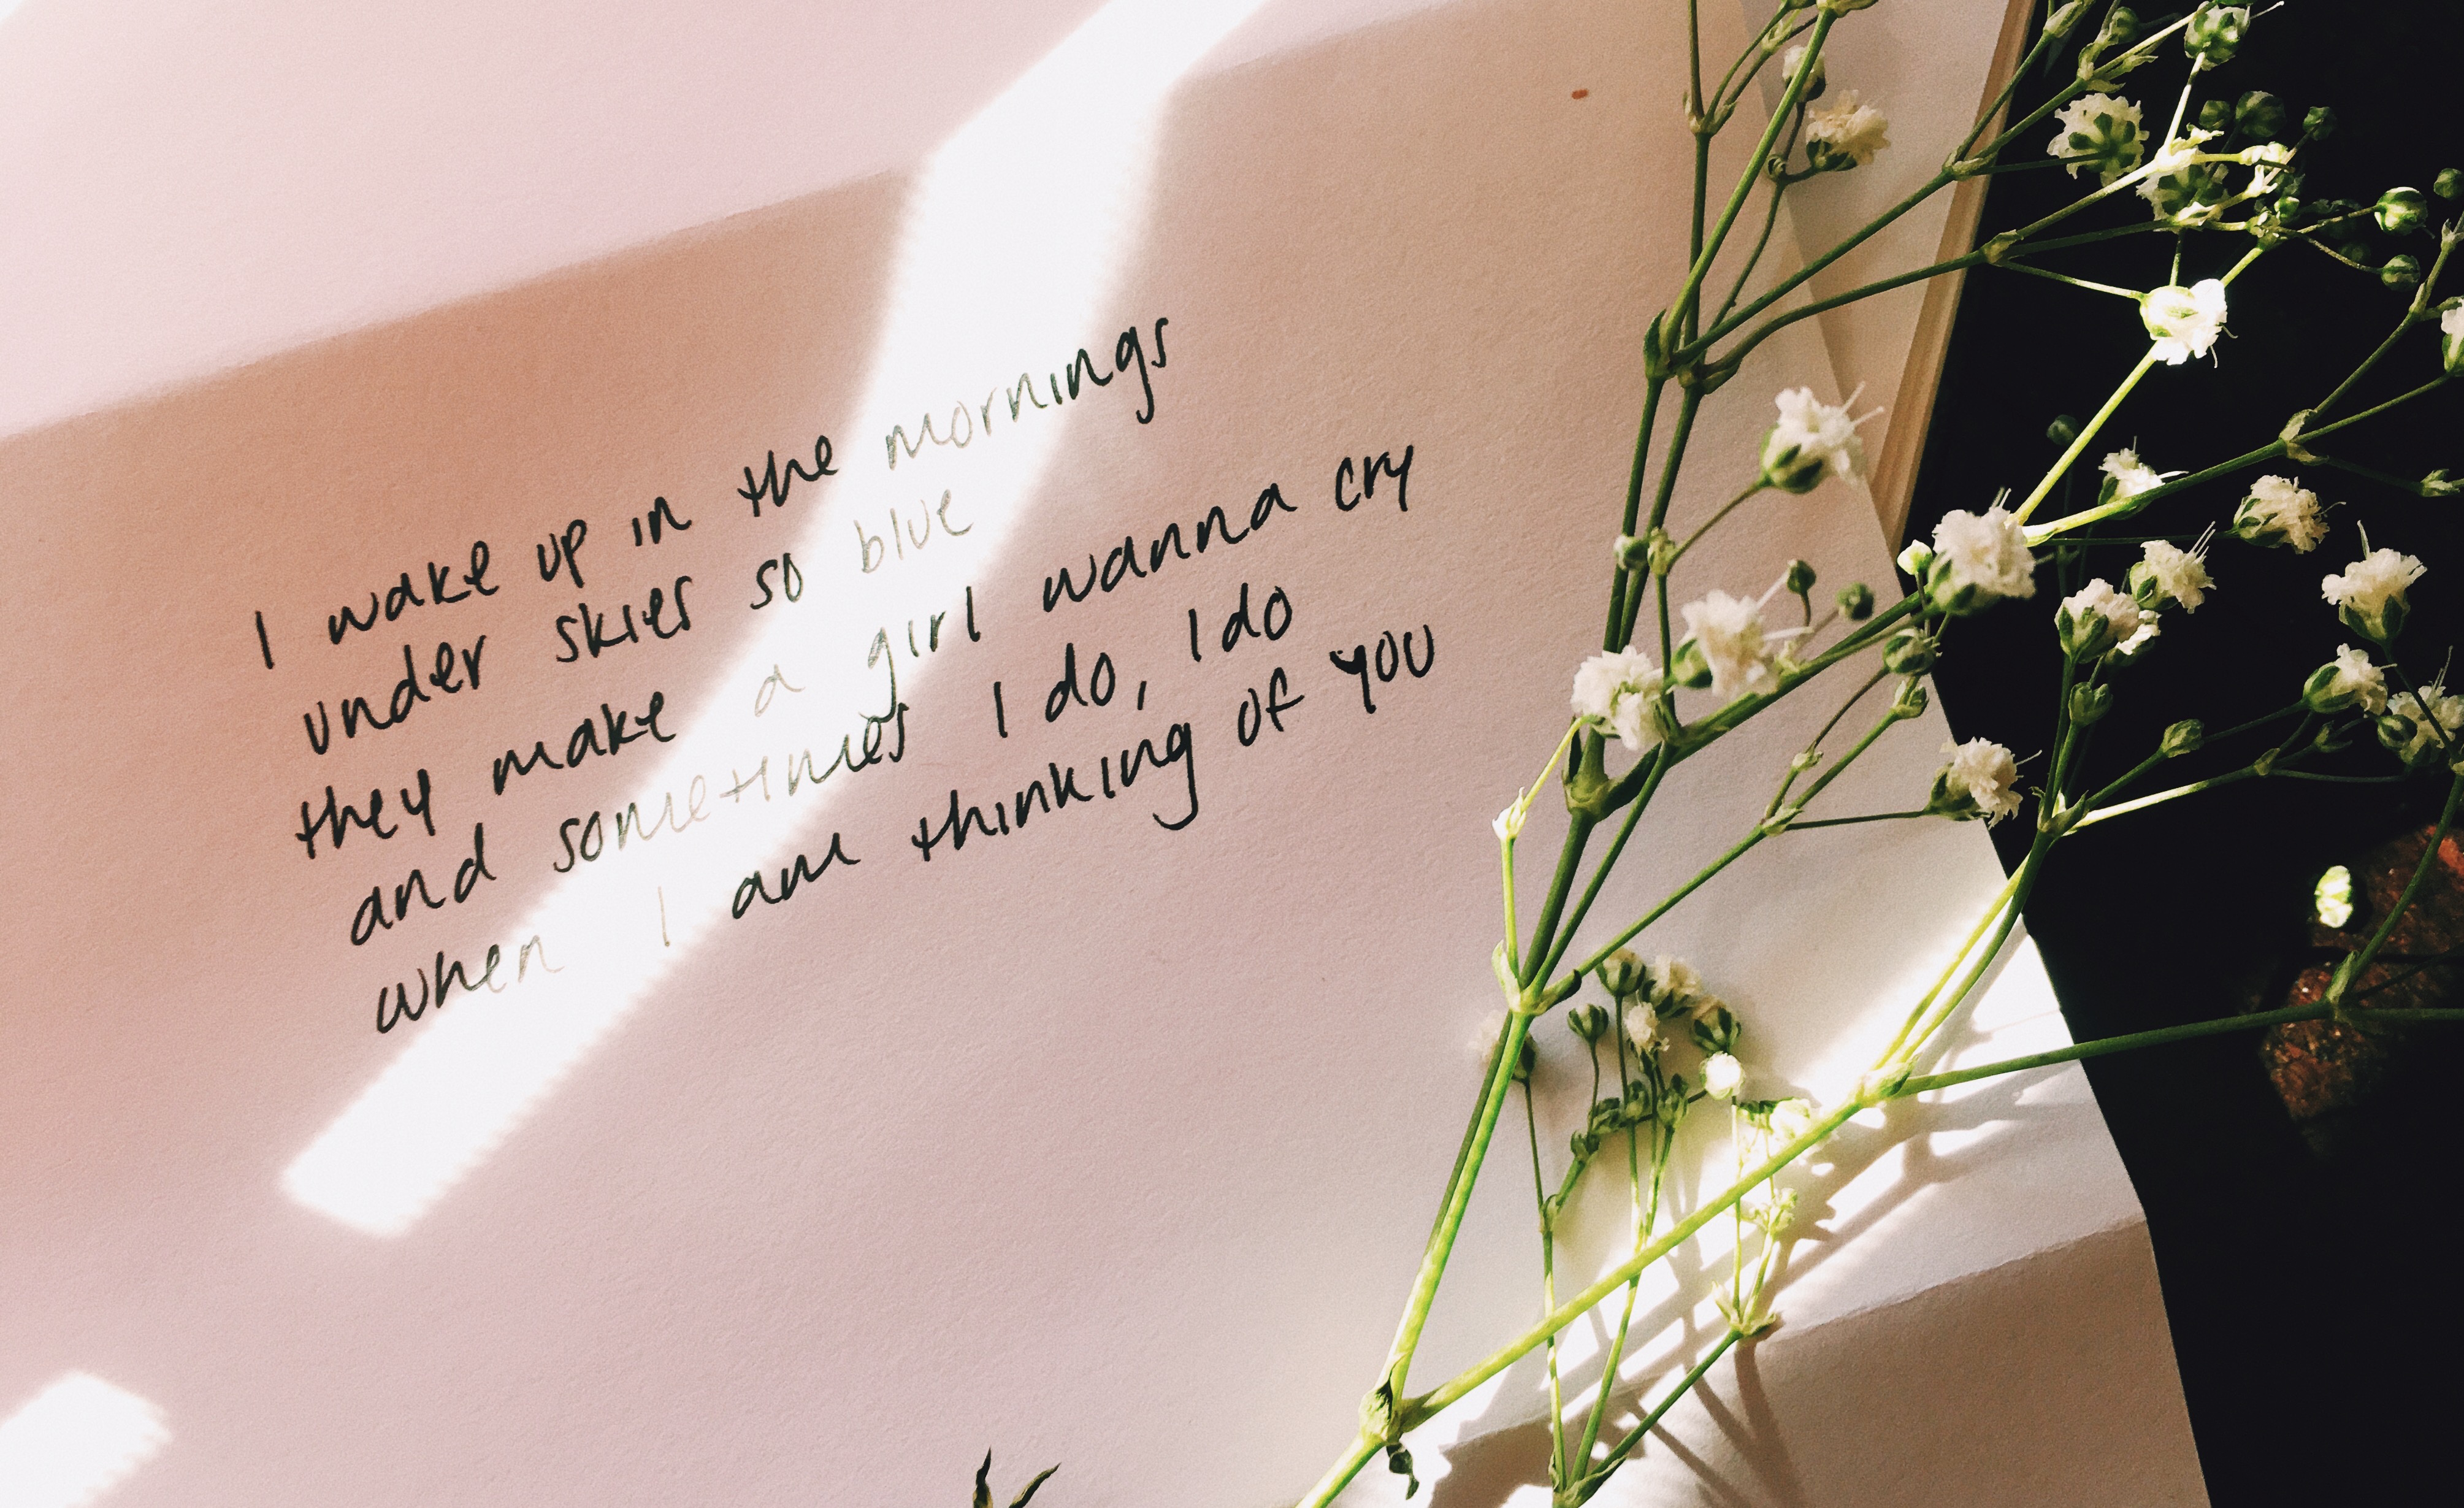 I wake up in the mornings
under skies so blue
they make a girl wanna cry
and sometimes I do, I do
when I am thinking of you